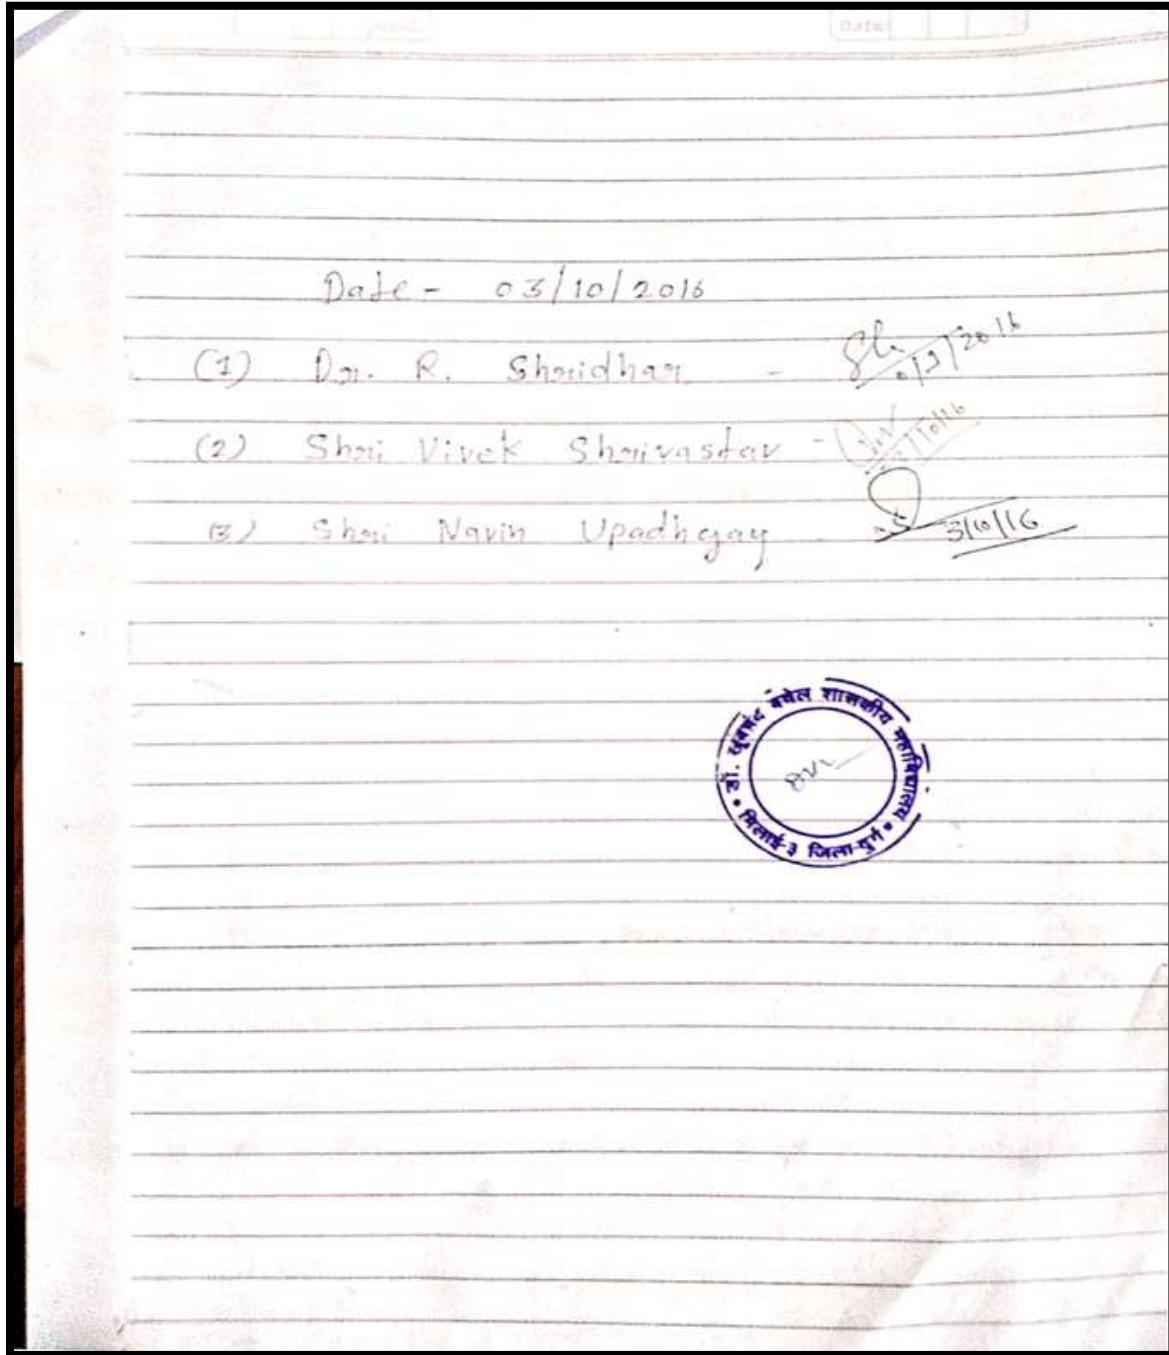 Date
Date - 03/10/2016
(1) Dr. R. Shridhar -
(2) Shri Vivek Shrivastav -
(3) Shri Navin Upadhegay - 3/10/16
डॉ. खूबचंद बघेल शासकीय महाविद्यालय
भिलाई-3 जिला-दुर्ग